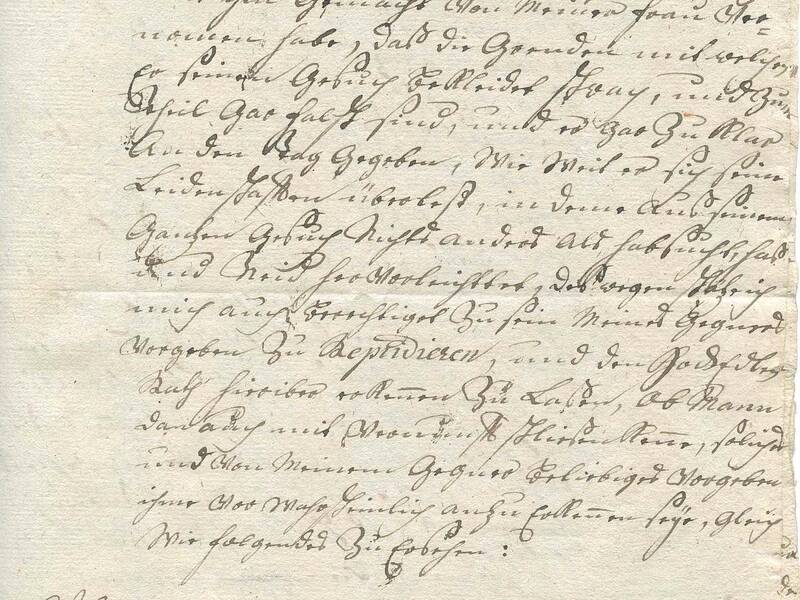 gemacht Von Meiner frau Ver=
nomen habe, daß die Grenden mit welchen
Er seinen Gesuch bekleidet schwach, und Zum
theil Gar falsch sind, und er Gar Zu klar
An den Tag Gegeben, Wie Weit er sich seine
Leidenschafften überlest, in deme Aus seinem
Gantzen Gesuch Nichts anders Als habsucht, haß
und Neid hervorleichtet, deßwegen schäze ich
mich auch Berechtiget Zu sein Meines Gegners
Vorgeben Zu Repridieren, und den HochEdlen
Rath hieriber erkennen Zu Laßen, Ob Mann
dan auch mit Vernunfft schliesen kenne, solches
und Von Meinem Gegner Beliebiges Vorgeben
ihme Vor Wahrscheinlich anzu Erkennen seÿe, Gleich
Wie folgendes Zu Ersehen :